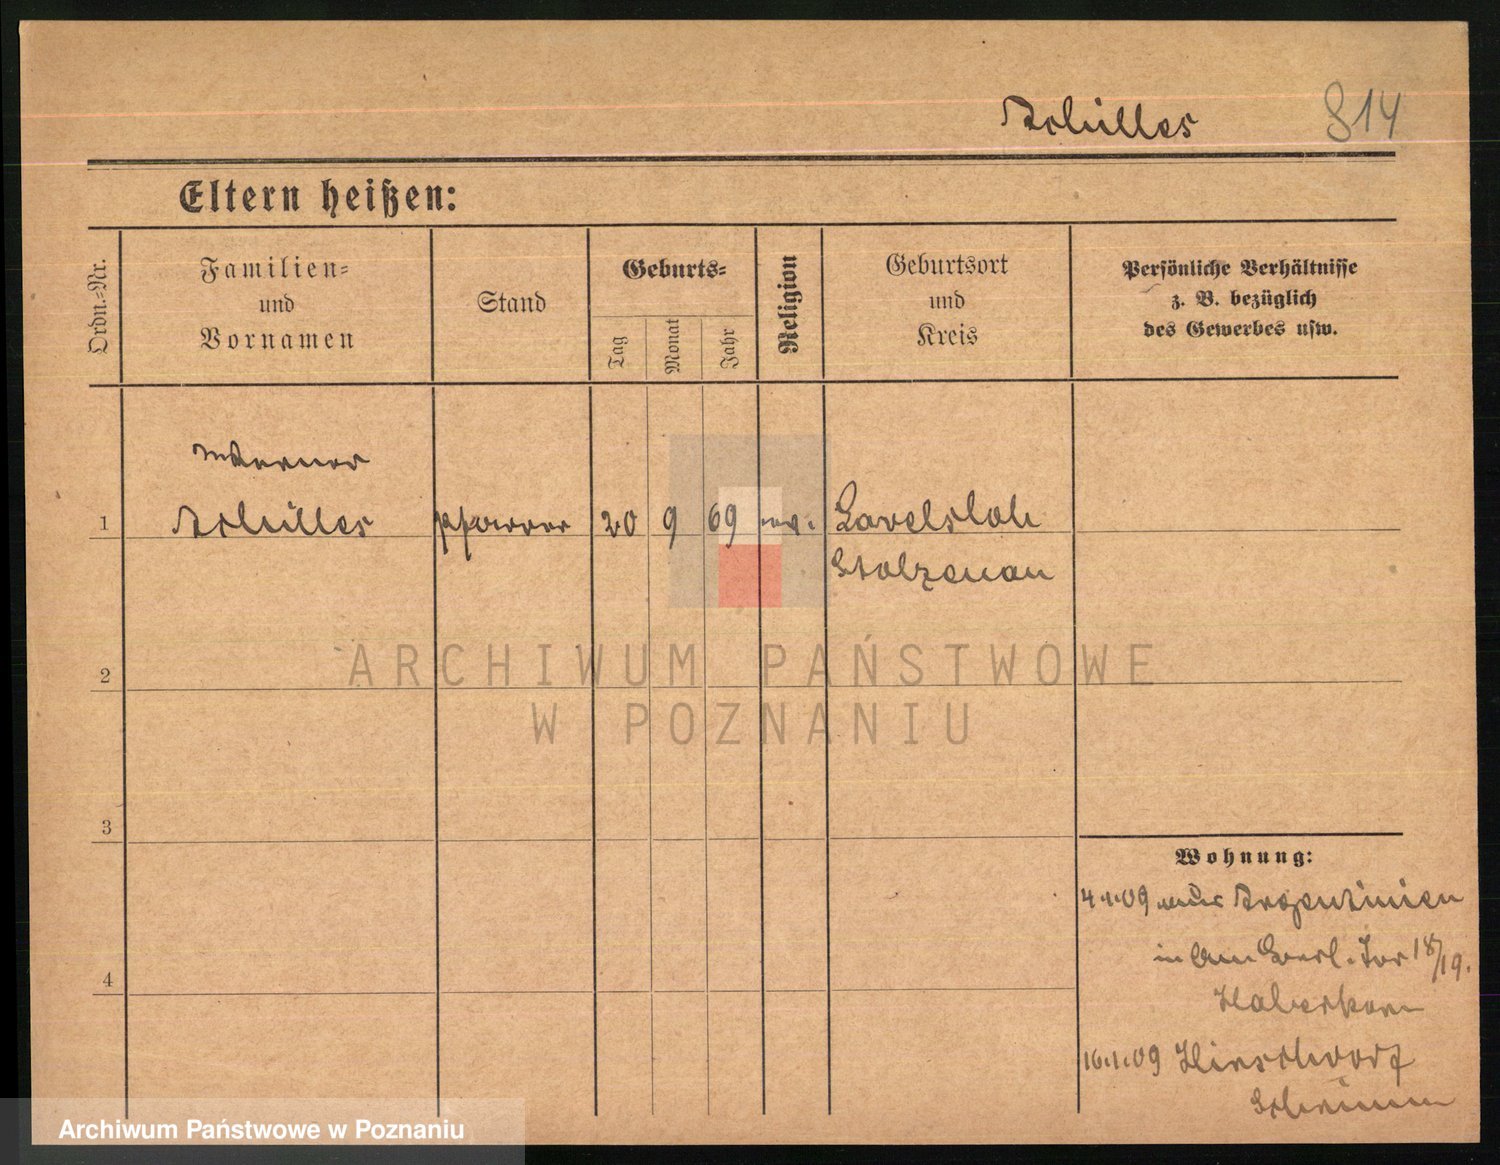 Achilles 814
Eltern heißen:
Ordn.-Nr.
Familien-
und
Vornamen
Stand
Geburts-
Tag
Monat
Jahr
Religion
Geburtsort
und
Kreis
Persönliche Verhältnisse
z. B. bezüglich
des Gewerbes usw.
Werner
1 Achilles Pfarrer 20 9 69 ev. Lavelsloh
Stolzenau
ARCHIWUM PAŃSTWOWE
W POZNANIU
2
3
4
Wohnung:
4.1.09 aus Argentinien
in Am Berl. Tor 18/19.
Haberkorn
16.1.09 Hirschdorf
Schrimm
Archiwum Państwowe w Poznaniu